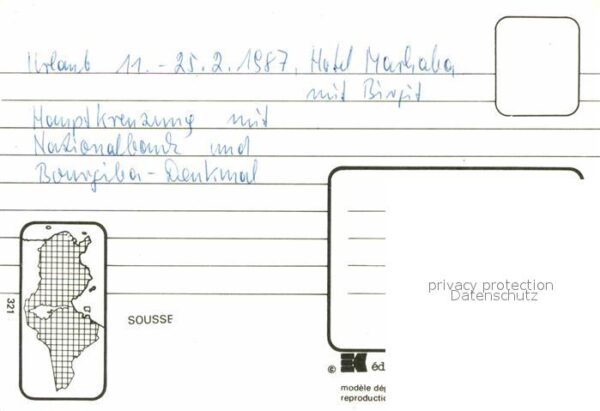 Urlaub 11. - 25.2.1987, Hotel Marhaba
mit Birgit
Hauptkreuzung mit
Nationalbank und
Bourgiba-Denkmal
privacy protection
Datenschutz
321
SOUSSE
© EK éd
modèle dép
reproductic